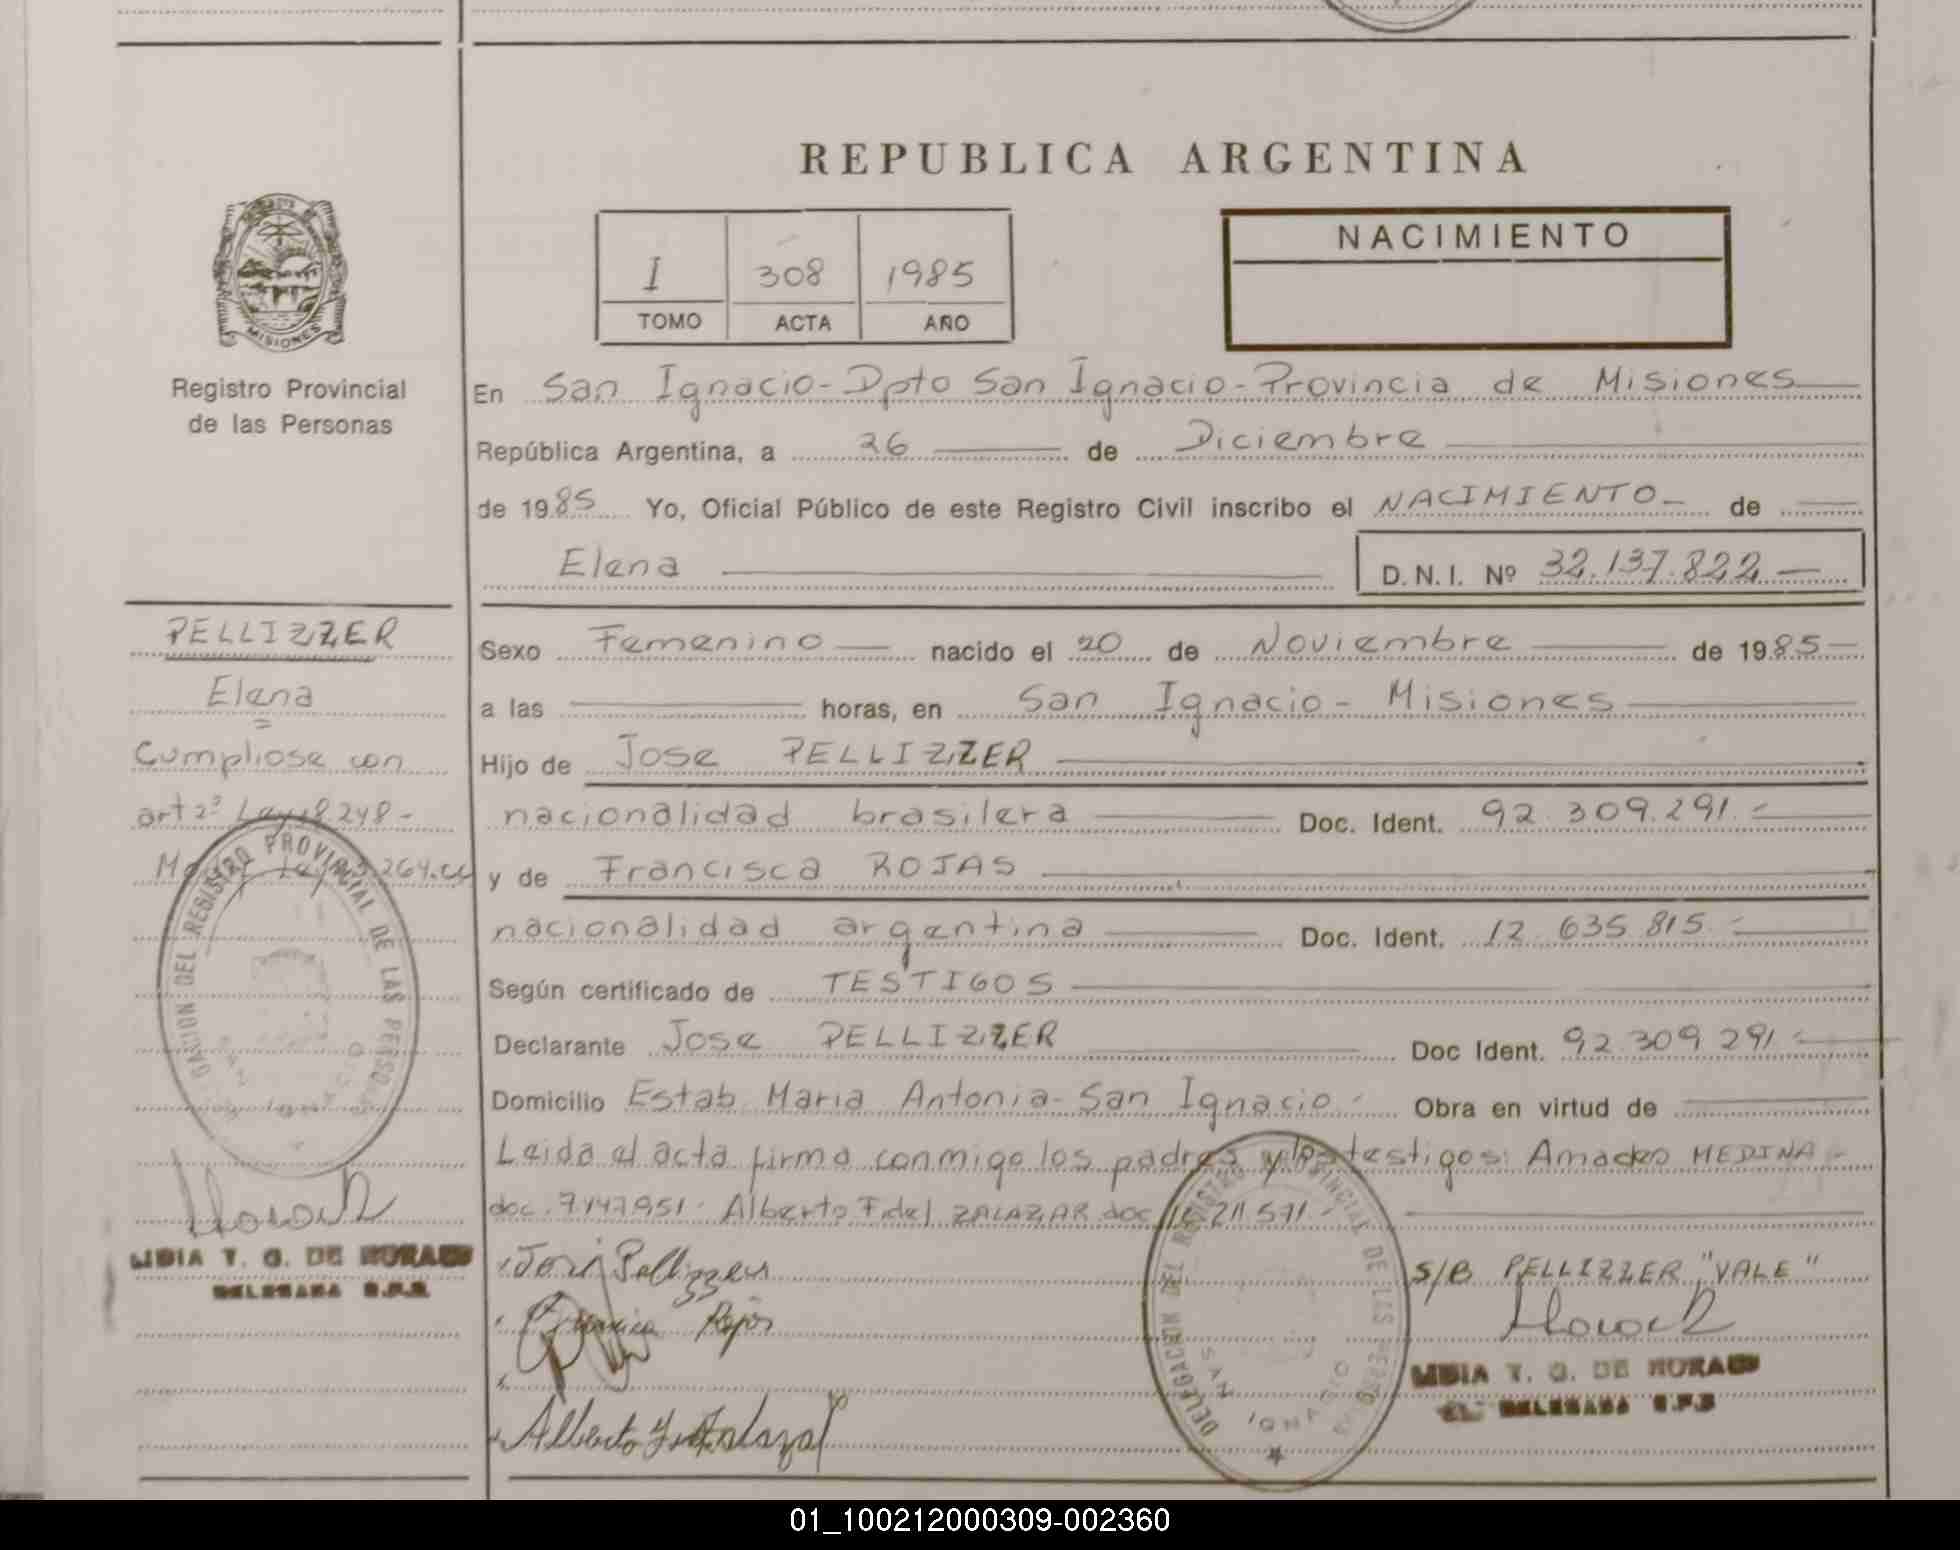 REPUBLICA ARGENTINA
MISIONES
Registro Provincial
de las Personas
I 308 1985
TOMO ACTA AÑO
NACIMIENTO
En San Ignacio - Dpto San Ignacio - Provincia de Misiones
República Argentina, a 26 de Diciembre
de 1985 Yo, Oficial Público de este Registro Civil inscribo el NACIMIENTO de
Elena D.N.I. Nº 32.137.822
PELLIZZER
Elena
Cumpliose con
art 2º Ley 18.248 -
Sexo Femenino nacido el 20 de Noviembre de 1985
a las horas, en San Ignacio - Misiones
Hijo de Jose PELLIZZER
nacionalidad brasilera Doc. Ident. 92.309.291.-
y de Francisca ROJAS
nacionalidad argentina Doc. Ident. 12.635.815.-
Según certificado de TESTIGOS
Declarante Jose PELLIZZER Doc Ident. 92.309.291.-
Domicilio Estab. Maria Antonia - San Ignacio.- Obra en virtud de
Leida el acta firma conmigo los padres y los testigos: Amadeo MEDINA -
doc. 7.147.951. Alberto Fidel ZALAZAR doc 211.571.-
Jose Pellizzer
Francisca Rojas
Alberto F. Zalazar
S/B PELLIZZER "VALE"
LIDIA T. G. DE MORAES
DELEGADA R.P.P.
LIDIA T. G. DE MORAES
DELEGADA R.P.P.
DELEGACION DEL REGISTRO PROVINCIAL DE LAS PERSONAS
SAN IGNACIO
DELEGACION DEL REGISTRO PROVINCIAL DE LAS PERSONAS
SAN IGNACIO
01_100212000309-002360